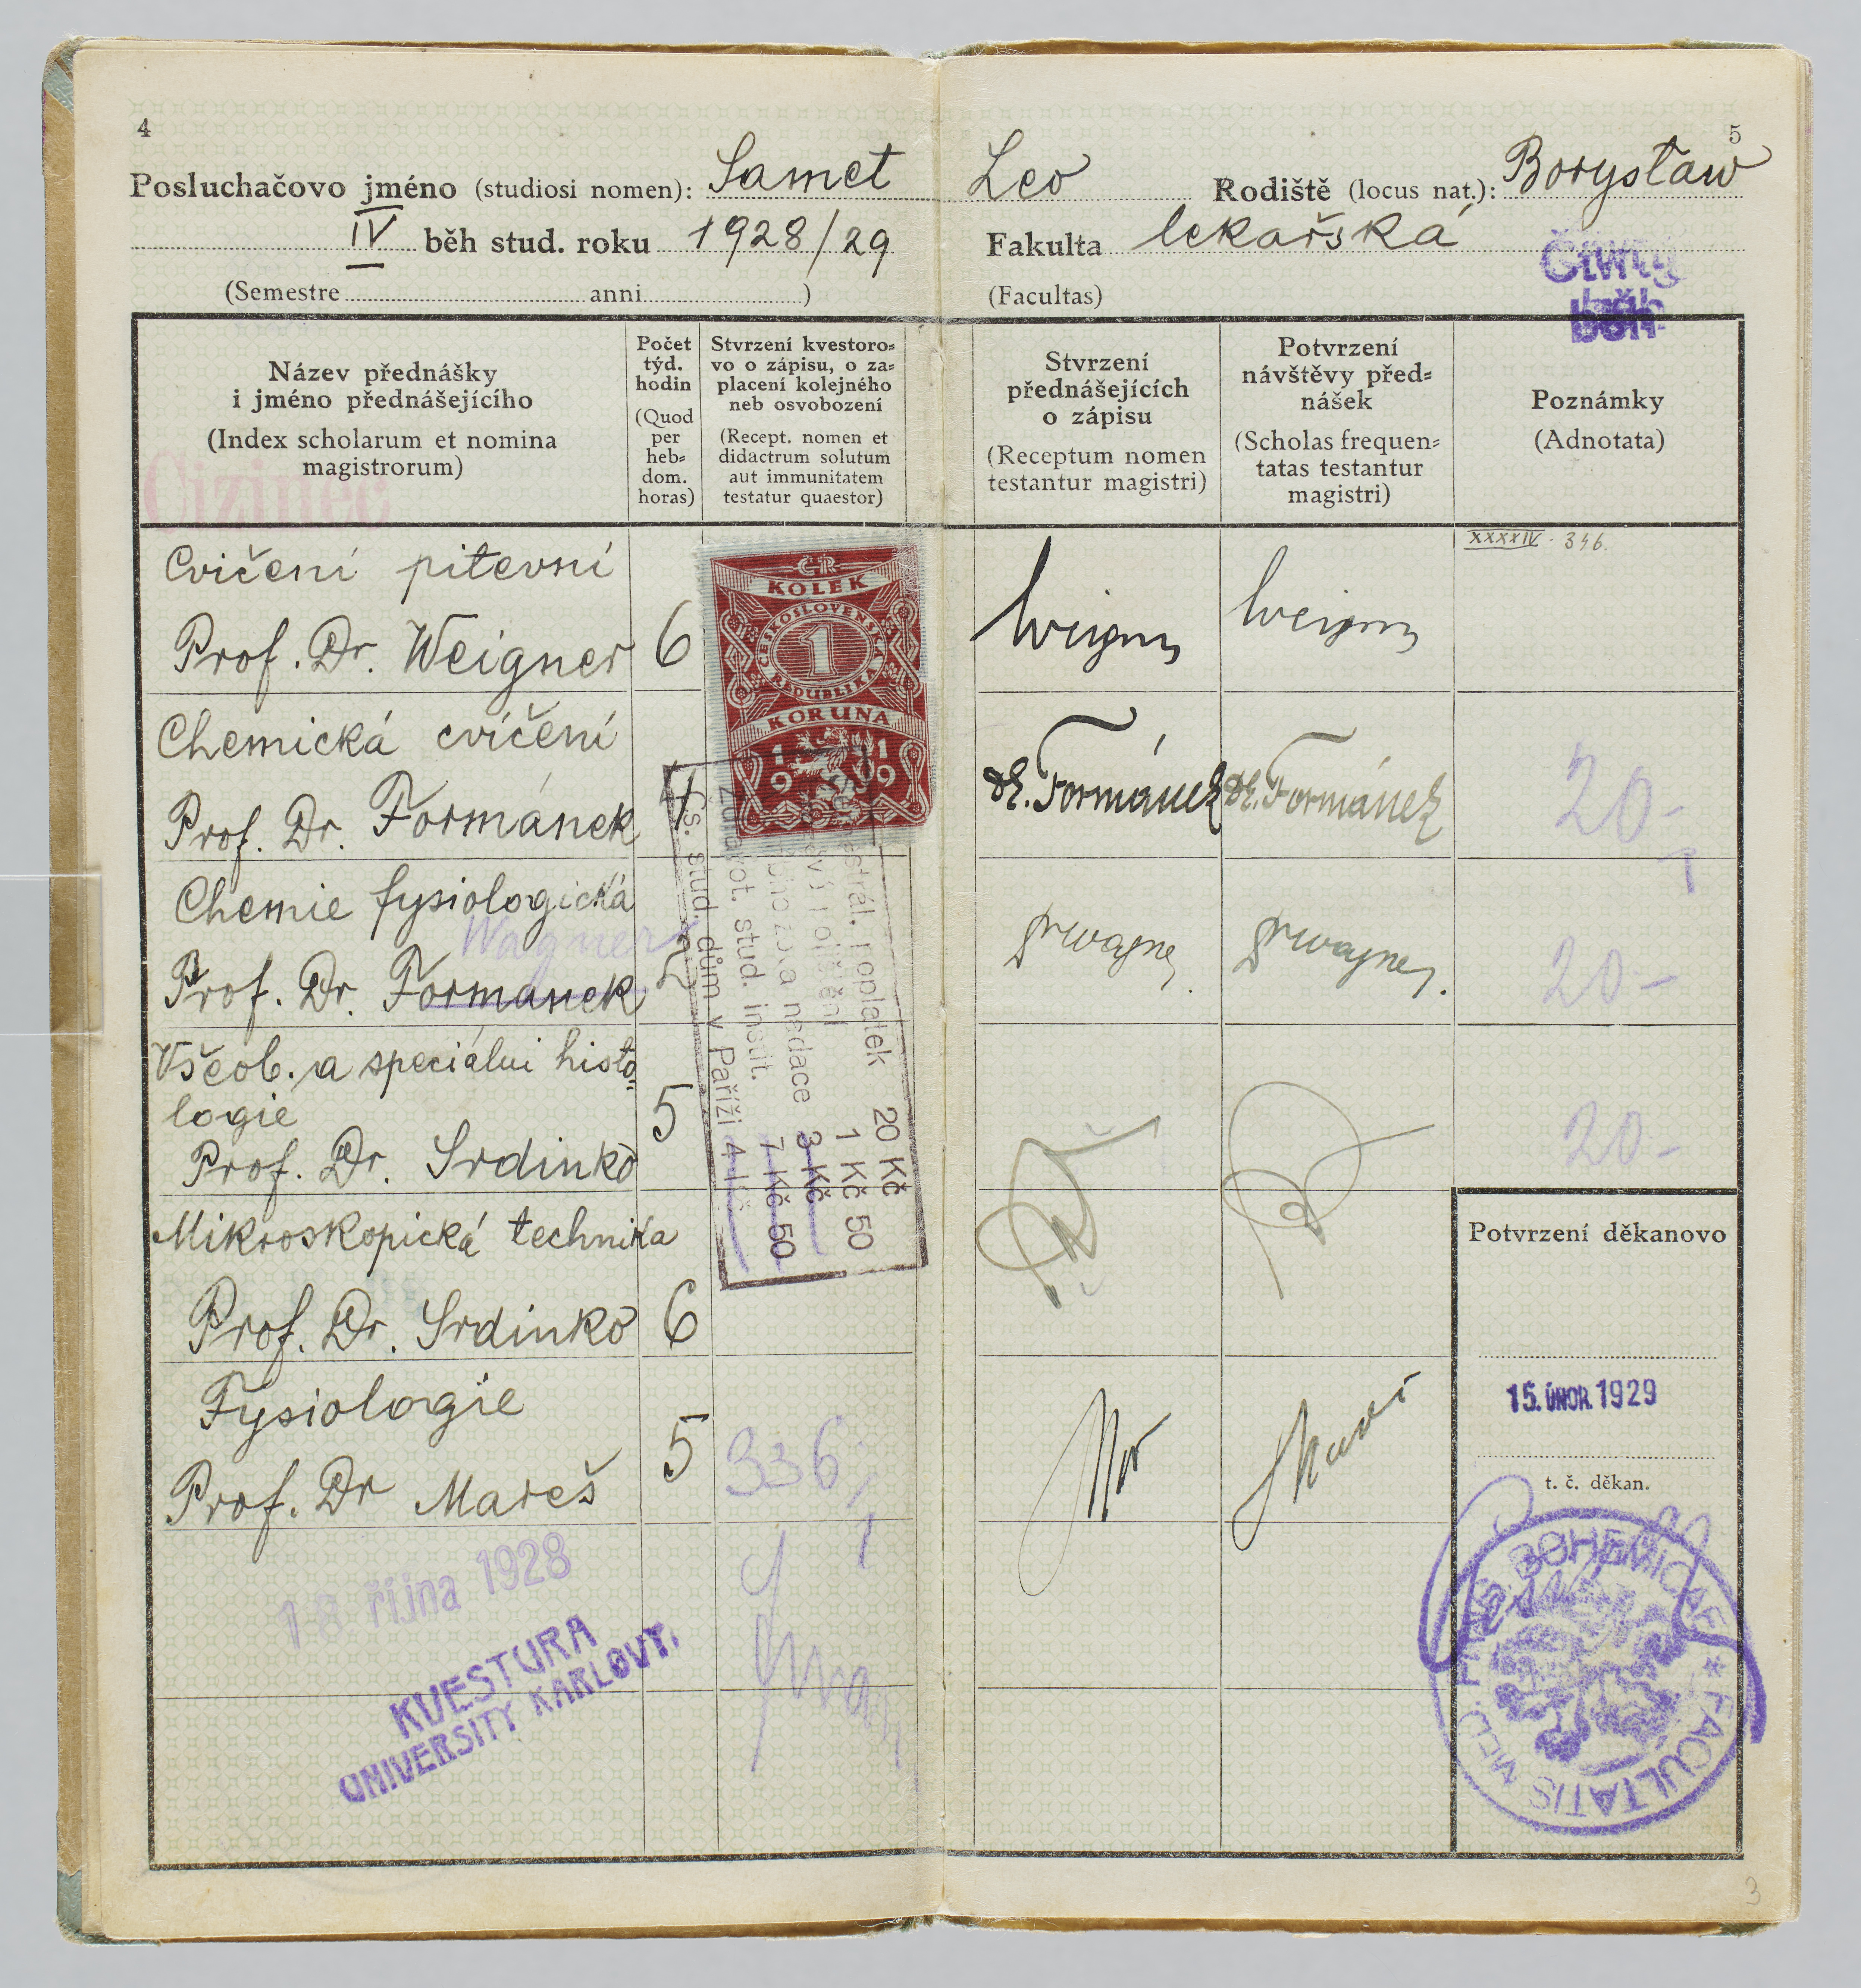 4
Posluchačovo jméno (studiosi nomen): Samet
IV běh stud. roku 1928/29
(Semestre anni )
Název přednášky
i jméno přednášejícího
(Index scholarum et nomina
magistrorum)
Cizinec
Počet
týd.
hodin
(Quod
per
heb=
dom.
horas)
Stvrzení kvestoro=
vo o zápisu, o za=
placení kolejného
neb osvobození
(Recept. nomen et
didactrum solutum
aut immunitatem
testatur quaestor)
Cvičení pitevní
Prof. Dr. Weigner 6
Chemická cvičení
Prof. Dr. Formánek 4
Chemie fysiologická
Wagner
Prof. Dr. Formanek 5
Všeob. a speciálni histo=
logie
Prof. Dr. Srdinko 5
Mikroskopická technika
Prof. Dr. Srdinko 6
Fysiologie
Prof. Dr Mareš 5
336,-
18 října 1928
KVESTURA
UNIVERSITY KARLOVY.
ČR
KOLEK
ČESKOSLOVENSKÁ
1
REPUBLIKA
KORUNA
1919
poplatek 20 Kč
1 Kč 50
nadace 3 Kč
stud. instit. 7 Kč 50
Čs. stud. dům v Paříži 4 Kč
5
Leo Rodiště (locus nat.): Borysław
Fakulta lekařská
(Facultas)
Čtvrtý
běh
Stvrzení
přednášejících
o zápisu
(Receptum nomen
testantur magistri)
Potvrzení
návštěvy před=
nášek
(Scholas frequen=
tatas testantur
magistri)
Poznámky
(Adnotata)
XXXXIV - 346.
Weigner Weigner
Dr. Formánek Dr. Formánek 20-
20-
20-
Potvrzení děkanovo
15. ÚNOR. 1929
t. č. děkan.
BOHEMICAE * FACULTATIS MED.
3